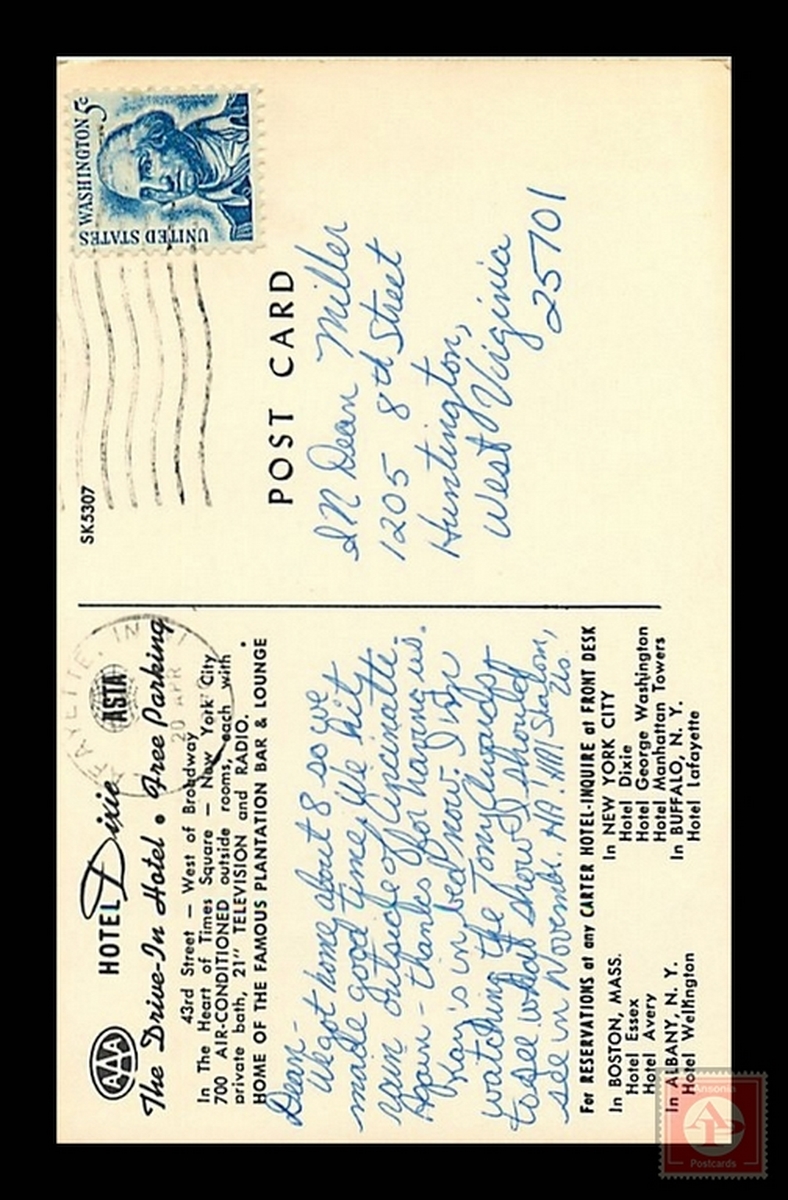 AAA
HOTEL Dixie
ASTA
The Drive-In Hotel • Free Parking
43rd Street — West of Broadway
In The Heart of Times Square — New York City
700 AIR-CONDITIONED outside rooms, each with
private bath, 21" TELEVISION and RADIO.
HOME OF THE FAMOUS PLANTATION BAR & LOUNGE
Dean -
We got home about 8 so we
made good time. We hit
rain outside of Cincinatti.
Again - thanks for having us.
Kay's in bed now. I'm
watching the Tony Awards
to see what show I should
see in November. HA! HA! Shalom,
For RESERVATIONS at any CARTER HOTEL-INQUIRE at FRONT DESK
In BOSTON, MASS.
Hotel Essex
Hotel Avery
In ALBANY, N. Y.
Hotel Wellington
In NEW YORK CITY
Hotel Dixie
Hotel George Washington
Hotel Manhattan Towers
In BUFFALO, N. Y.
Hotel Lafayette
SK5307
20 APR
UNITED STATES
WASHINGTON 5c
POST CARD
Dean Miller
1205 8th Street
Huntington,
West Virginia
25701
Ansonia
AP
Postcards